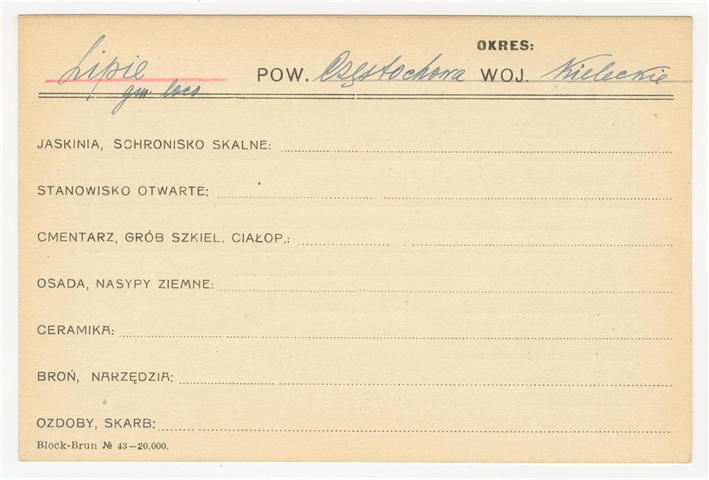 OKRES:
Lipie POW. Częstochowa WOJ. Kieleckie
gm. loco
JASKINIA, SCHRONISKO SKALNE:
STANOWISKO OTWARTE:
CMENTARZ, GRÓB SZKIEL. CIAŁOP.:
OSADA, NASYPY ZIEMNE:
CERAMIKA:
BROŃ, NARZĘDZIA:
OZDOBY, SKARB:
Block-Brun № 43—20.000.